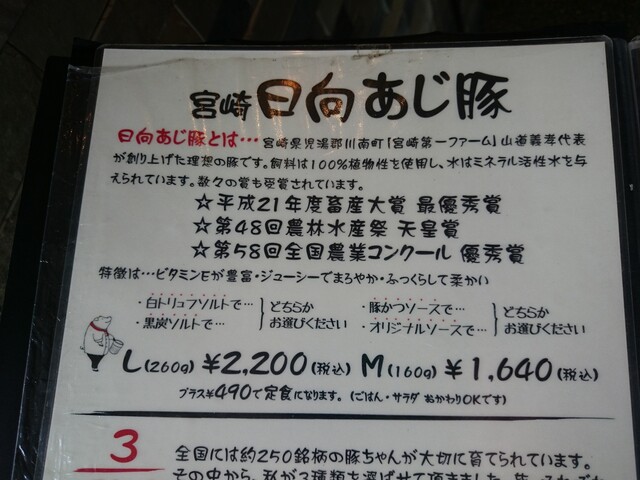 宮崎 日向あじ豚
日向あじ豚とは… 宮崎県児湯郡川南町「宮崎第一ファーム」山道義孝代表
が創り上げた理想の豚です。飼料は100%植物性を使用し、水はミネラル活性水を与
えられています。数々の賞も受賞されています。
☆平成21年度畜産大賞 最優秀賞
☆第48回農林水産祭 天皇賞
☆第58回全国農業コンクール 優秀賞
特徴は…ビタミンEが豊富・ジューシーでまろやか・ふっくらして柔かい
・白トリュフソルトで…
・黒炭ソルトで…
どちらか
お選びください
・豚かつソースで…
・オリジナルソースで…
どちらか
お選びください
L(260g) ¥2,200(税込) M(160g) ¥1,640(税込)
プラス¥490で定食になります。(ごはん・サラダ おかわりOKです)
3
全国には約250銘柄の豚ちゃんが大切に育てられています。
その中から、私が3種類を選ばせて頂きました。